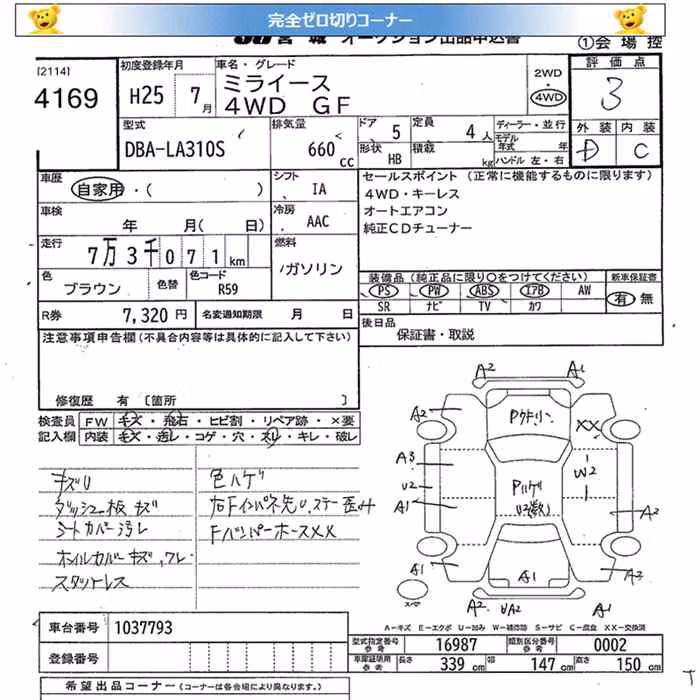 完全ゼロ切りコーナー
JU 宮城 オークション出品申込書 ①会場控
[2114]
4169
初度登録年月 H25 7月
車名・グレード
ミライース
4WD GF
2WD
4WD
評価点
3
外装 内装
D C
型式 DBA-LA310S
排気量 660 cc
ドア 5 定員 4人
形状 HB 積載 kg
ディーラー・並行
モデル年式 年
ハンドル 左・右
車歴 自家用・( )
シフト IA
車検 年 月( 日)
冷房 AAC
走行 7万3千071km
燃料 ガソリン
色 ブラウン 色替
色コード R59
R券 7,320円
名変通知期限 月 日
セールスポイント (正常に機能するものに限ります)
4WD・キーレス
オートエアコン
純正CDチューナー
装備品(純正品に限り○をつけてください) 新車保証書
PS PW ABS エアB AW 有 無
SR ナビ TV カワ
後日品
保証書・取説
注意事項申告欄(不具合内容等は具体的に記入して下さい)
修復歴 有 [箇所 ]
検査員記入欄
FW キズ・飛石・ヒビ割・リペア跡・×要
内装 キズ・汚レ・コゲ・穴・スレ・キレ・破レ
キズU
ダッシュ板キズ
シートカバー汚レ
オイルカバーキズ,ワレ
スタットレス
色ハゲ
右Fインパネ先U,ステー歪み
FバンパーホースXX
A2 A1
A2 Pクリーン XX
A3 W2
U2 Pハゲ
A1 U2(数) A2
A1 A1 A3
スペア
A2 UA2 A1
A-キズ E-エクボ U-凹み W-補修跡 S-サビ C-腐食 XX-交換済
車台番号 1037793
登録番号
型式指定番号参考 16987
類別区分番号参考 0002
車庫証明用参考 長さ 339cm 幅 147cm 高さ 150cm
希望出品コーナー (コーナーは各会場により異なります。)